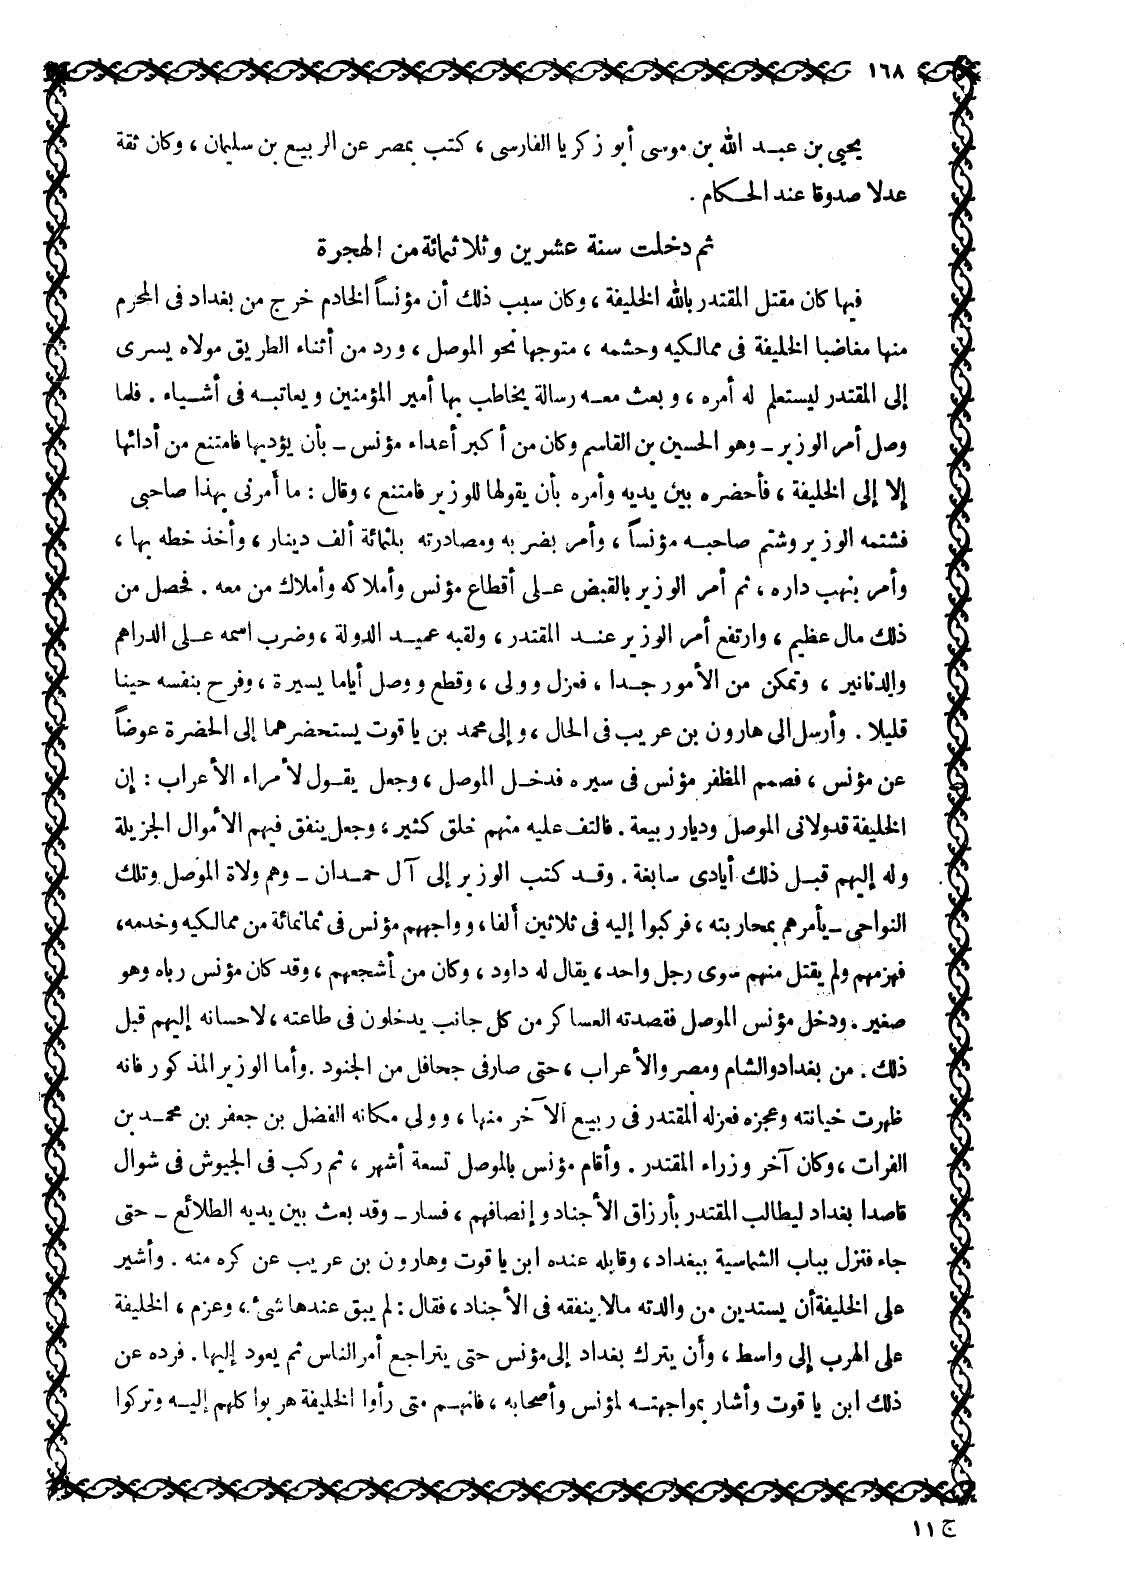 ١٦٨
يحيى بن عبد الله بن موسى أبو زكريا الفارسى ، كتب بمصر عن الربيع بن سليمان ، وكان ثقة
عدلا صدوقا عند الحكام .
ثم دخلت سنة عشرين وثلاثمائة من الهجرة
فيها كان مقتل المقتدر بالله الخليفة ، وكان سبب ذلك أن مؤنساً الخادم خرج من بغداد فى المحرم
منها مغاضبا الخليفة فى ممالكيه وحشمه ، متوجها نحو الموصل ، ورد من أثناء الطريق مولاه يسرى
إلى المقتدر ليستعلم له أمره ، وبعث معه رسالة يخاطب بها أمير المؤمنين ويعاتبه فى أشياء . فلما
وصل أمر الوزير ـ وهو الحسين بن القاسم وكان من أكبر أعداء مؤنس ـ بأن يؤديها فامتنع من أدائها
إلا إلى الخليفة ، فأحضره بين يديه وأمره بأن يقولها للوزير فامتنع ، وقال : ما أمرنى بهذا صاحبى
فشتمه الوزير وشتم صاحبه مؤنساً ، وأمر بضربه ومصادرته بثلثمائة ألف دينار ، وأخذ خطه بها ،
وأمر بنهب داره ، ثم أمر الوزير بالقبض على أقطاع مؤنس وأملاكه وأملاك من معه . فحصل من
ذلك مال عظيم ، وارتفع أمر الوزير عند المقتدر ، ولقبه عميد الدولة ، وضرب اسمه على الدراهم
والدنانير ، وتمكن من الأمور جدا ، فعزل وولى ، وقطع ووصل أياما يسيرة ، وفرح بنفسه حينا
قليلا . وأرسل الى هارون بن عريب فى الحال ، وإلى محمد بن ياقوت يستحضرهما إلى الحضرة عوضاً
عن مؤنس ، فصمم المظفر مؤنس فى سيره فدخل الموصل ، وجعل يقول لأمراء الأعراب : إن
الخليفة قد ولانى الموصل وديار ربيعة . فالتف عليه منهم خلق كثير ، وجعل ينفق فيهم الأموال الجزيلة
وله إليهم قبل ذلك أيادى سابغة . وقد كتب الوزير إلى آل حمدان ـ وهم ولاة الموصل وتلك
النواحى ـ يأمرهم بمحاربته ، فركبوا إليه فى ثلاثين ألفا ، وواجههم مؤنس فى ثمانمائة من ممالكيه وخدمه ،
فهزمهم ولم يقتل منهم سوى رجل واحد ، يقال له داود ، وكان من أشجعهم ، وقد كان مؤنس رباه وهو
صغير . ودخل مؤنس الموصل فقصدته العساكر من كل جانب يدخلون فى طاعته ، لاحسانه إليهم قبل
ذلك . من بغداد والشام ومصر والأعراب ، حتى صار فى جحافل من الجنود . وأما الوزير المذكور فانه
ظهرت خيانته وعجزه فعزله المقتدر فى ربيع الآخر منها ، وولى مكانه الفضل بن جعفر بن محمد بن
الفرات ، وكان آخر وزراء المقتدر . وأقام مؤنس بالموصل تسعة أشهر ، ثم ركب فى الجيوش فى شوال
قاصدا بغداد ليطالب المقتدر بأرزاق الأجناد وإنصافهم ، فسار ـ وقد بعث بين يديه الطلائع ـ حتى
جاء فنزل بباب الشماسية ببغداد ، وقابله عنده ابن ياقوت وهارون بن عريب عن كره منه . وأشير
على الخليفة أن يستدين من والدته مالا ينفقه فى الأجناد ، فقال : لم يبق عندها شئ ، وعزم ، الخليفة
على الهرب إلى واسط ، وأن يترك بغداد إلى مؤنس حتى يتراجع أمر الناس ثم يعود إليها . فرده عن
ذلك ابن ياقوت وأشار بمواجهته لمؤنس وأصحابه ، فانهم متى رأوا الخليفة هربوا كلهم إليه وتركوا
ج ١١